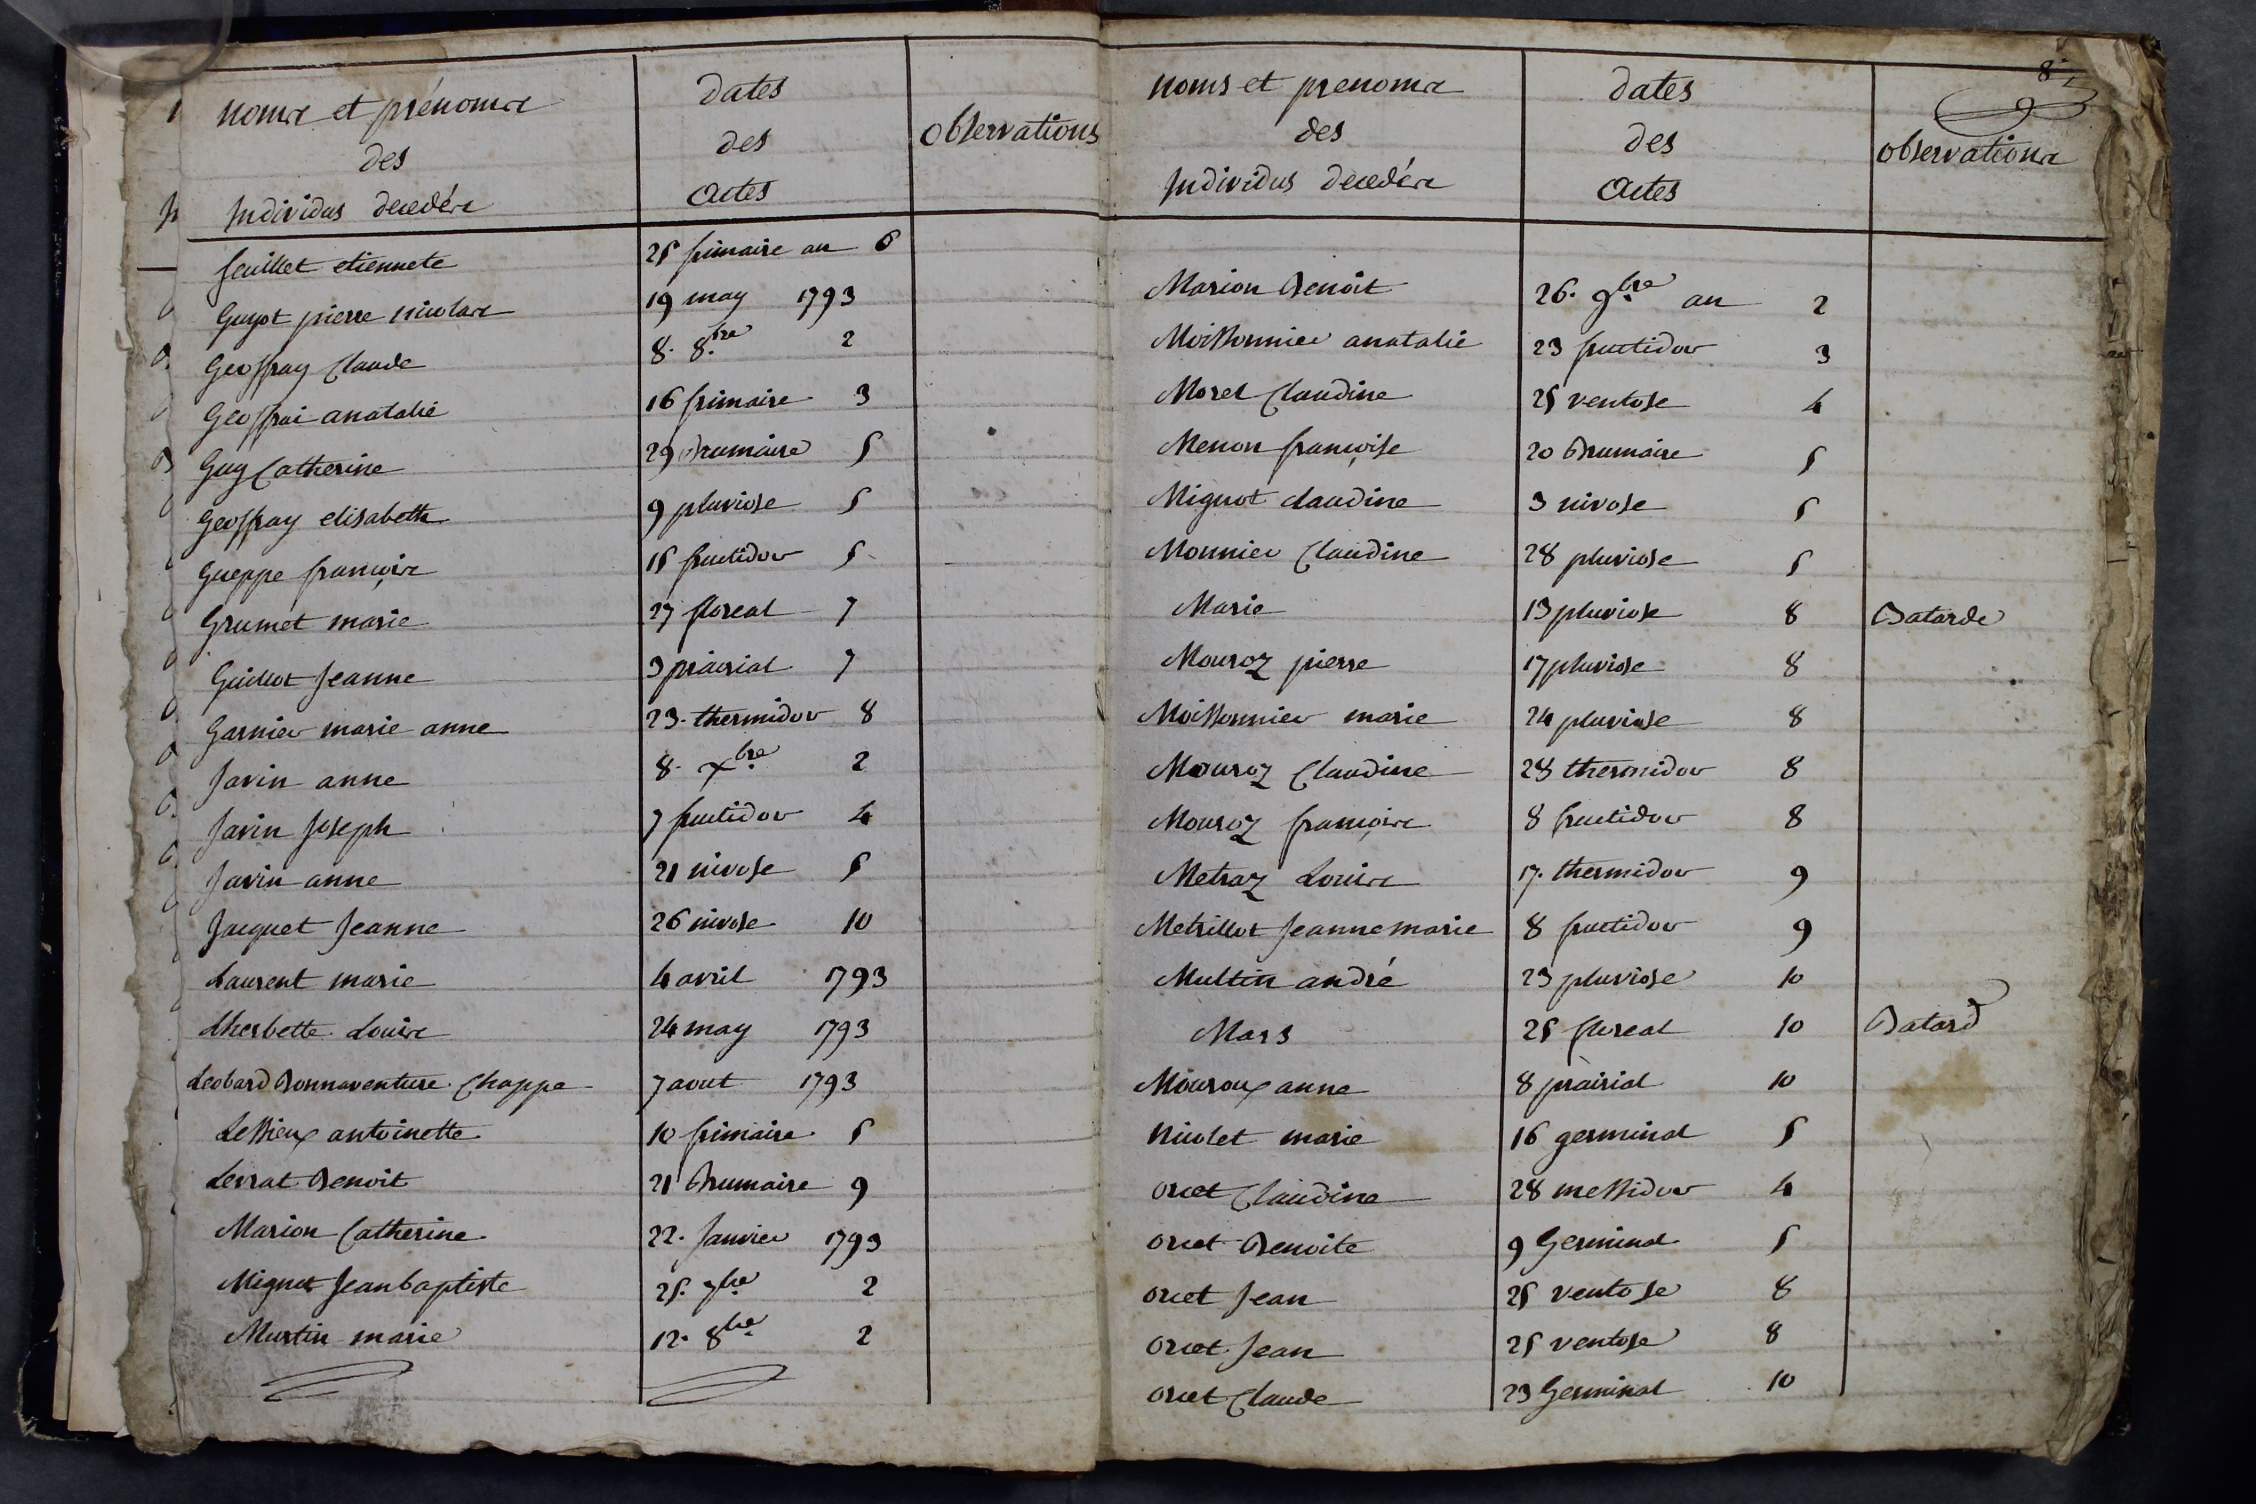 noms et prénoms
des
Individus decedés
dates
des
actes
observations
feuillet etiennete 25 frimaire an 6
Guyot pierre nicolas 19 may 1793
Geoffray Claude 8. 8.bre 2
Geoffrai anatalie 16 frimaire 3
Guy Catherine 29 Brumaire 5
Geoffray elisabeth 9 pluviose 5
Gueppe françois 15 fructidor 5
Grumet marie 27 floreal 7
Guillot Jeanne 3 prairial 7
Garnier marie anne 23. thermidor 8
Javin anne 8. Xbre 2
Javin Joseph 7 fructidor 4
Javin anne 21 nivose 5
Jacquet Jeanne 26 nivose 10
Laurent marie 4 avril 1793
Lherbette Louis 24 may 1793
Leobard Bonnaventure Chappe 7 aout 1793
Lessieux antoinette 10 frimaire 5
Levrat Benoit 21 Brumaire 9
Marion Catherine 22. Janvier 1793
Mignot Jean baptiste 25. 7bre 2
Murtin marie 12. 8bre 2
noms et prenoms
des
Individus decedés
dates
des
actes
8
observations
Marion Benoit 26. 9bre an 2
Moissonnier anatalie 23 fructidor 3
Morel Claudine 25 ventose 4
Menon françoise 20 Brumaire 5
Mignot claudine 3 nivose 5
Monnier Claudine 28 pluviose 5
Marie 13 pluviose 8 Batarde
Mouroz pierre 17 pluviose 8
Moissonnier marie 24 pluviose 8
Mouroz Claudine 28 thermidor 8
Mouroz françois 8 fructidor 8
Metraz Louis 17. thermidor 9
Metrillot Jeanne marie 8 fructidor 9
Multin andré 23 pluviose 10
Mars 25 floreal 10 Batard
Mouroux anne 8 prairial 10
Nicolet marie 16 germinal 5
orcet Claudine 28 messidor 4
orcet Benoite 9 Germinal 5
orcet Jean 25 ventose 8
orcet Jean 25 ventose 8
orcet Claude 23 Germinal 10